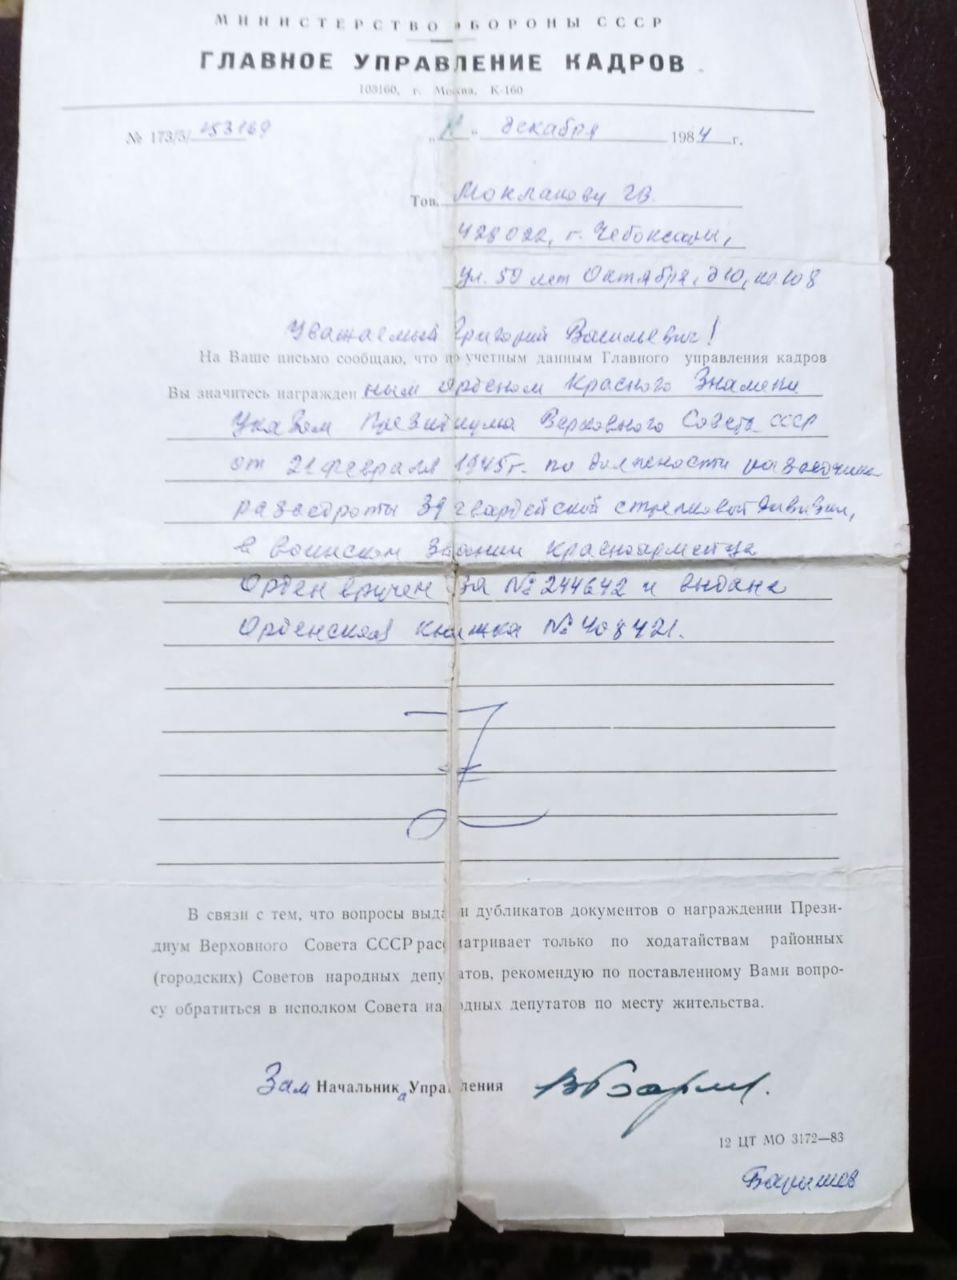 МИНИСТЕРСТВО ОБОРОНЫ СССР
ГЛАВНОЕ УПРАВЛЕНИЕ КАДРОВ
103160, г. Москва, К-160
№ 173/3/ 153169 " " декабря 1984 г.
Тов. Моклакову Г.В.
428022, г. Чебоксары,
ул. 50 лет Октября, д 10, кв. 108
Уважаемый Григорий Васильевич!
На Ваше письмо сообщаю, что по учетным данным Главного управления кадров
Вы значитесь награжденным орденом Красного Знамени
Указом Президиума Верховного Совета СССР
от 21 февраля 1945г. по должности разведчика
разведроты 39 гвардейской стрелковой дивизии,
в воинском звании красноармейца
Орден вручен за № 244642 и выдана
Орденская книжка № 408421.
В связи с тем, что вопросы выдачи дубликатов документов о награждении Прези-
диум Верховного Совета СССР рассматривает только по ходатайствам районных
(городских) Советов народных депутатов, рекомендую по поставленному Вами вопро-
су обратиться в исполком Совета народных депутатов по месту жительства.
Зам Начальника Управления
12 ЦТ МО 3172—83
Барышев